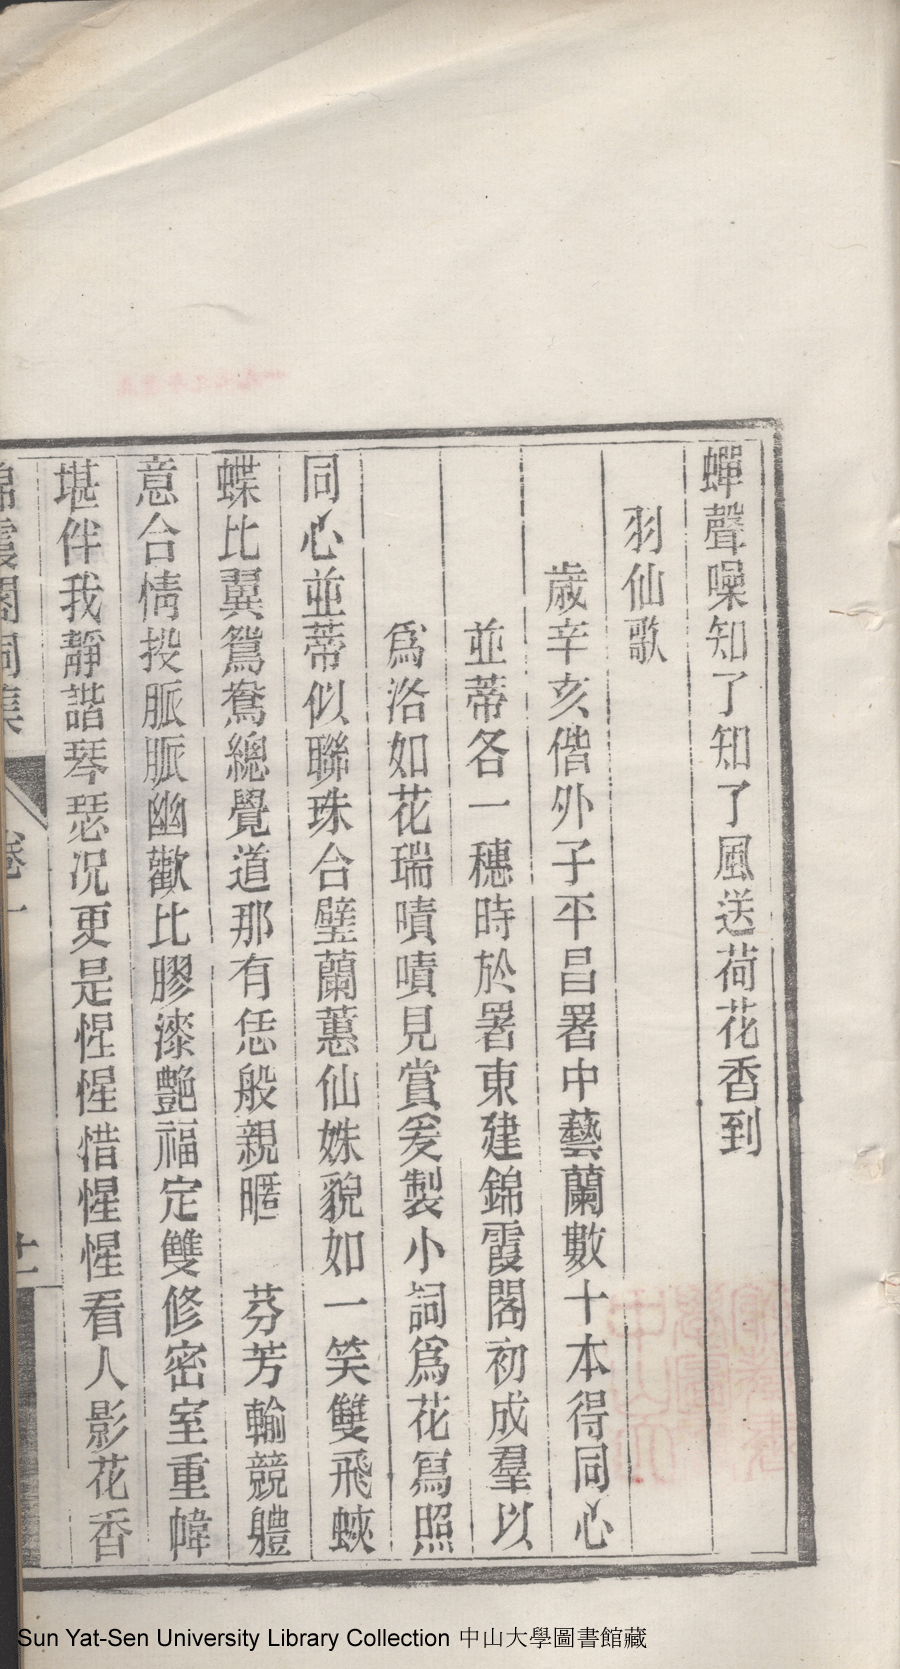 蟬聲噪知了知了風送荷花香到
羽仙歌
歲辛亥偕外子平昌署中藝蘭數十本得同心
並蒂各一穗時於署東建錦霞閣初成羣以
爲洛如花瑞嘖嘖見賞爰製小詞爲花寫照
同心並蒂似聯珠合璧蘭蕙仙姝貌如一笑雙飛蛺
蝶比翼鴛鴦總覺道那有恁般親暱 芬芳輸競體
意合情投脈脈幽歡比膠漆艷福定雙修密室重幃
堪伴我靜諧琴瑟况更是惺惺惜惺惺看人影花香
錦霞閣詞集 卷一 十一
Sun Yat-Sen University Library Collection 中山大學圖書館藏